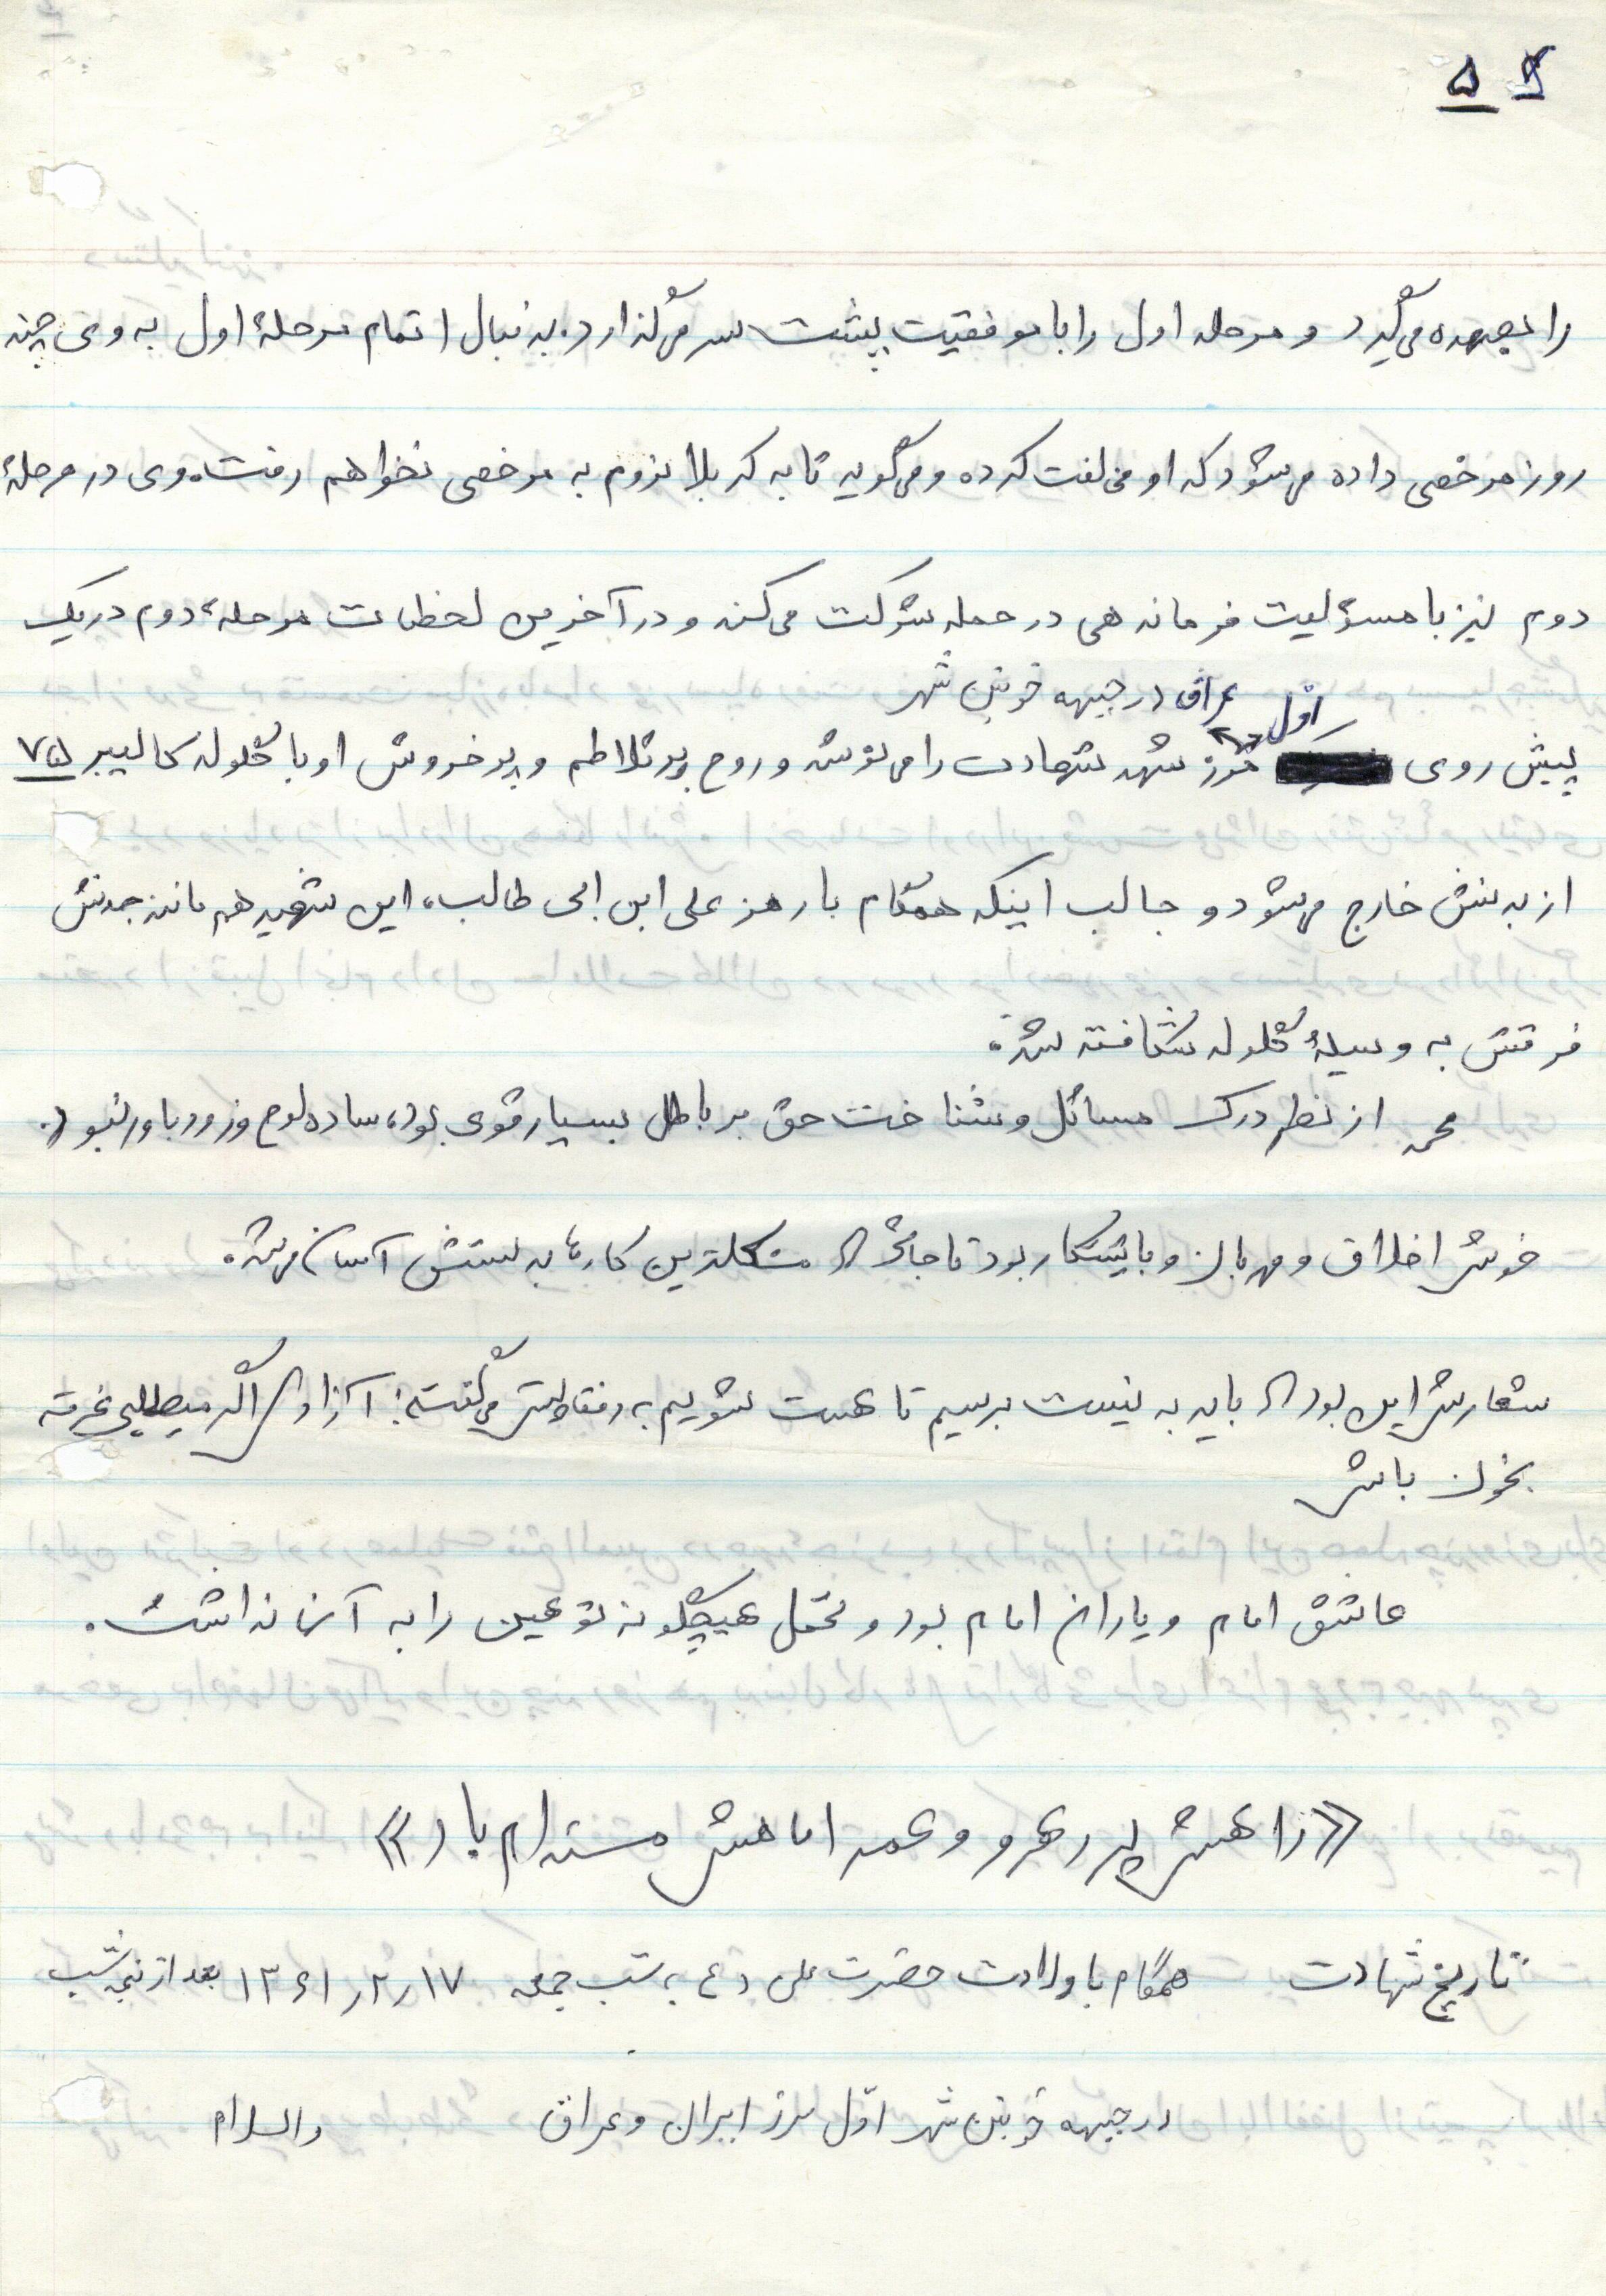 ۵
را بعهده می‌گیرد و مرحله اول را با موفقیت پشت سر می‌گذارد. بدنبال اتمام مرحلۀ اول به وی چند
روز مرخصی داده می‌شود که او مخالفت کرده و می‌گوید تا به کربلا نروم به مرخصی نخواهم رفت. وی در مرحلۀ
دوم نیز با مسؤلیت فرماندهی در حمله شرکت می‌کند و در آخرین لحظات مرحلۀ دوم در یک
اول عراق در جبهه خونین شهر
پیش روی مرز شهد شهادت را می‌نوشد و روح پر تلاطم و پر خروش او با گلوله کالیبر ۷۵
از بدنش خارج می‌شود و جالب اینکه همگام با رمز علی ابن ابی طالب، این شهید هم مانند جدش
فرقش به وسیلۀ گلوله شکافته شد.
محمد از نظر درک مسائل و شناخت حق بر باطل بسیار قوی بود، ساده لوح و زود باور نبود.
خوش اخلاق و مهربان و با پشتکار بود تا جائی که مشکلترین کارها بدستش آسان می‌شد.
شعارش این بود که باید به نیست برسیم تا هست شویم به رفقایش می‌گفت: آزادی اگر میطلبی غرقه
بخون باش
عاشق امام و یاران امام بود و تحمل هیچگونه توهین را به آنان نداشت.
«راهش پر رهرو و عمر امامش مستدام باد»
تاریخ شهادت همگام با ولادت حضرت علی (ع) شب جمعه ۱۷ر۲ر۱۳۶۱ بعد از نیمه شب
در جبهه خونین شهر اوّل مرز ایران و عراق والسلام